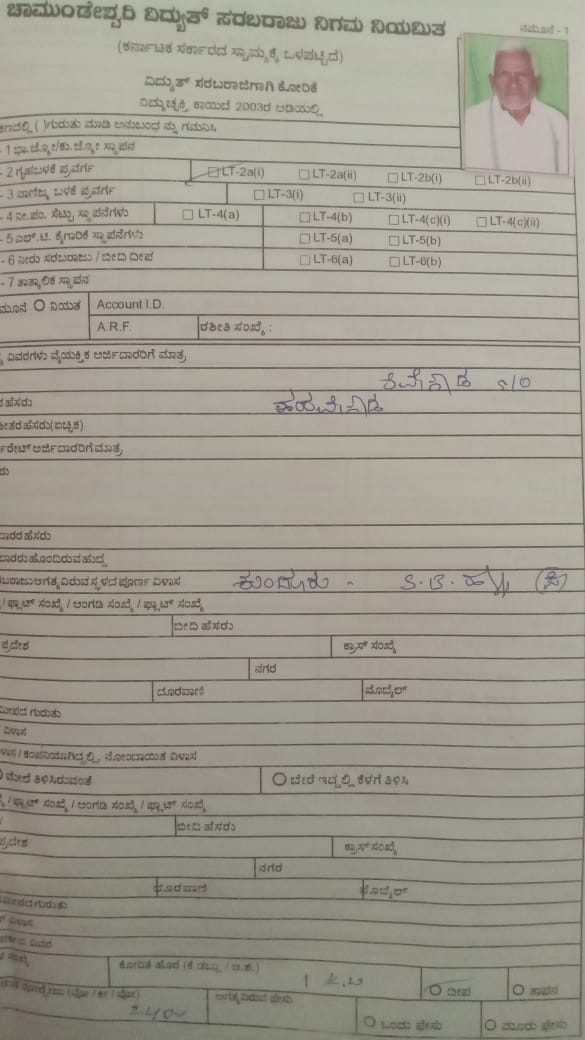 ಚಾಮುಂಡೇಶ್ವರಿ ವಿದ್ಯುತ್ ಸರಬರಾಜು ನಿಗಮ ನಿಯಮಿತ
ನಮೂನೆ - 1
(ಕರ್ನಾಟಕ ಸರ್ಕಾರದ ಸ್ವಾಮ್ಯಕ್ಕೆ ಒಳಪಟ್ಟಿದೆ)
ವಿದ್ಯುತ್ ಸರಬರಾಜಿಗಾಗಿ ಕೋರಿಕೆ
ವಿದ್ಯುಚ್ಛಕ್ತಿ ಕಾಯಿದೆ 2003ರ ಅಡಿಯಲ್ಲಿ
ಕಣದಲ್ಲಿ ( )ಗುರುತು ಮಾಡಿ ಅನುಬಂಧ ನ್ನು ಗಮನಿಸಿ
- 1 ಭಾ.ಜ್ಯೋ/ಕು.ಜ್ಯೋ ಸ್ಥಾಪನ
- 2 ಗೃಹಬಳಕೆ ಪ್ರವರ್ಗ LT-2a(i) LT-2a(ii) LT-2b(i) LT-2b(ii)
- 3 ವಾಣಿಜ್ಯ ಬಳಕೆ ಪ್ರವರ್ಗ LT-3(i) LT-3(ii)
- 4 ನೀ.ಪಂ. ಸೆಟ್ಟು ಸ್ಥಾಪನೆಗಳು LT-4(a) LT-4(b) LT-4(c)(i) LT-4(c)(ii)
- 5 ಎಲ್.ಟಿ. ಕೈಗಾರಿಕೆ ಸ್ಥಾಪನೆಗಳು LT-5(a) LT-5(b)
- 6 ನೀರು ಸರಬರಾಜು / ಬೀದಿ ದೀಪ LT-6(a) LT-6(b)
- 7 ತಾತ್ಕಾಲಿಕ ಸ್ಥಾಪನ
ನಿಯತ Account I.D.
A.R.F. ರಶೀತಿ ಸಂಖ್ಯೆ :
ವಿವರಗಳು ವೈಯಕ್ತಿಕ ಅರ್ಜಿದಾರರಿಗೆ ಮಾತ್ರ
S/O
ಹೆಸರು
ಹೆಸರು(ಐಚ್ಛಿಕ)
ಅರ್ಜಿದಾರರಿಗೆ ಮಾತ್ರ
ಹೆಸರು
ಹೊಂದಿರುವ ಹುದ್ದೆ
ಅಗತ್ಯವಿರುವ ಸ್ಥಳದ ಪೂರ್ಣ ವಿಳಾಸ ಕುಂದೂರು
/ ಫ್ಲಾಟ್ ಸಂಖ್ಯೆ / ಅಂಗಡಿ ಸಂಖ್ಯೆ / ಪ್ಲಾಟ್ ಸಂಖ್ಯೆ
ಬೀದಿ ಹೆಸರು
ಪ್ರದೇಶ ಕ್ರಾಸ್ ಸಂಖ್ಯೆ
ನಗರ
ದೂರವಾಣಿ ಮೊಬೈಲ್
ಗುರುತು
ವಿಳಾಸ
/ ಕಂಪನಿಯಾಗಿದ್ದಲ್ಲಿ, ನೋಂದಾಯಿತ ವಿಳಾಸ
ಮೇಲೆ ತಿಳಿಸಿರುವಂತೆ ಬೇರೆ ಇದ್ದಲ್ಲಿ ಕೆಳಗೆ ತಿಳಿಸಿ
/ ಫ್ಲಾಟ್ ಸಂಖ್ಯೆ / ಅಂಗಡಿ ಸಂಖ್ಯೆ / ಪ್ಲಾಟ್ ಸಂಖ್ಯೆ
ಬೀದಿ ಹೆಸರು
ಪ್ರದೇಶ ಕ್ರಾಸ್ ಸಂಖ್ಯೆ
ನಗರ
ದೂರವಾಣಿ ಮೊಬೈಲ್
ಗುರುತು
ವಿಳಾಸ
ವಿವರ
ಸಂಖ್ಯೆ ಕೋರಿಕೆ ಹೊರೆ ದೀಪ ತಾಪನ
240v ಅಗತ್ಯವಿರುವ ಫೇಸು ಒಂದು ಫೇಸು ಮೂರು ಫೇಸು